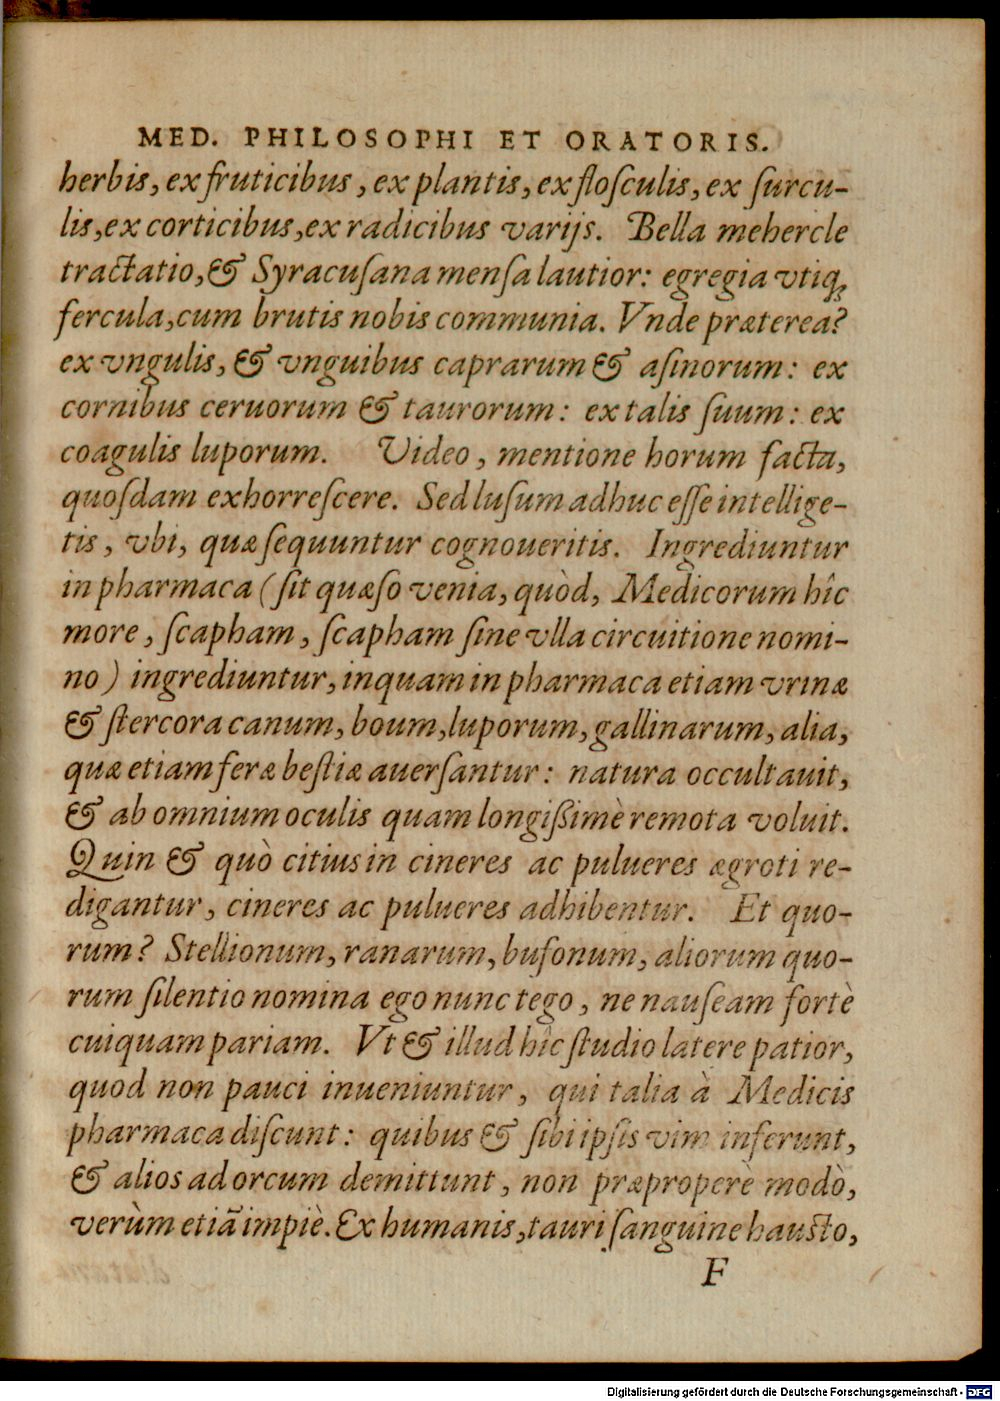 MED. PHILOSOPHI ET ORATORIS.
herbis, ex fruticibus, ex plantis, ex flosculis, ex surcu-
lis, ex corticibus, ex radicibus varijs. Bella mehercle
tractatio, & Syracusana mensa lautior: egregia vtiq́;
fercula, cum brutis nobis communia. Vnde præterea?
ex vngulis, & vnguibus caprarum & asinorum: ex
cornibus ceruorum & taurorum: ex talis suum: ex
coagulis luporum. Video, mentione horum facta,
quosdam exhorrescere. Sed lusum adhuc esse intellige-
tis, vbi, quæ sequuntur cognoueritis. Ingrediuntur
in pharmaca (sit quæso venia, quòd, Medicorum hîc
more, scapham, scapham sine vlla circuitione nomi-
no) ingrediuntur, inquam in pharmaca etiam vrinæ
& stercora canum, boum, luporum, gallinarum, alia,
quæ etiam feræ bestiæ auersantur: natura occultauit,
& ab omnium oculis quam longißimè remota voluit.
Quin & quò citius in cineres ac pulueres ægroti re-
digantur, cineres ac pulueres adhibentur. Et quo-
rum? Stellionum, ranarum, bufonum, aliorum quo-
rum silentio nomina ego nunc tego, ne nauseam fortè
cuiquam pariam. Vt & illud hîc studio latere patior,
quod non pauci inueniuntur, qui talia à Medicis
pharmaca discunt: quibus & sibi ipsis vim inferunt,
& alios ad orcum demittunt, non præproperè modò,
verùm etiã impiè. Ex humanis, tauri sanguine hausto,
F
Digitalisierung gefördert durch die Deutsche Forschungsgemeinschaft - DFG